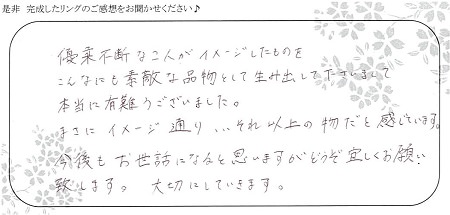 是非 完成したリングのご感想をお聞かせください♪
優柔不断な二人がイメージしたものを
こんなにも素敵な品物として生み出して下さいまして
本当に有難うございました。
まさにイメージ通り...それ以上の物だと感じています。
今後もお世話になると思いますがどうぞ宜しくお願い
致します。 大切にしていきます。